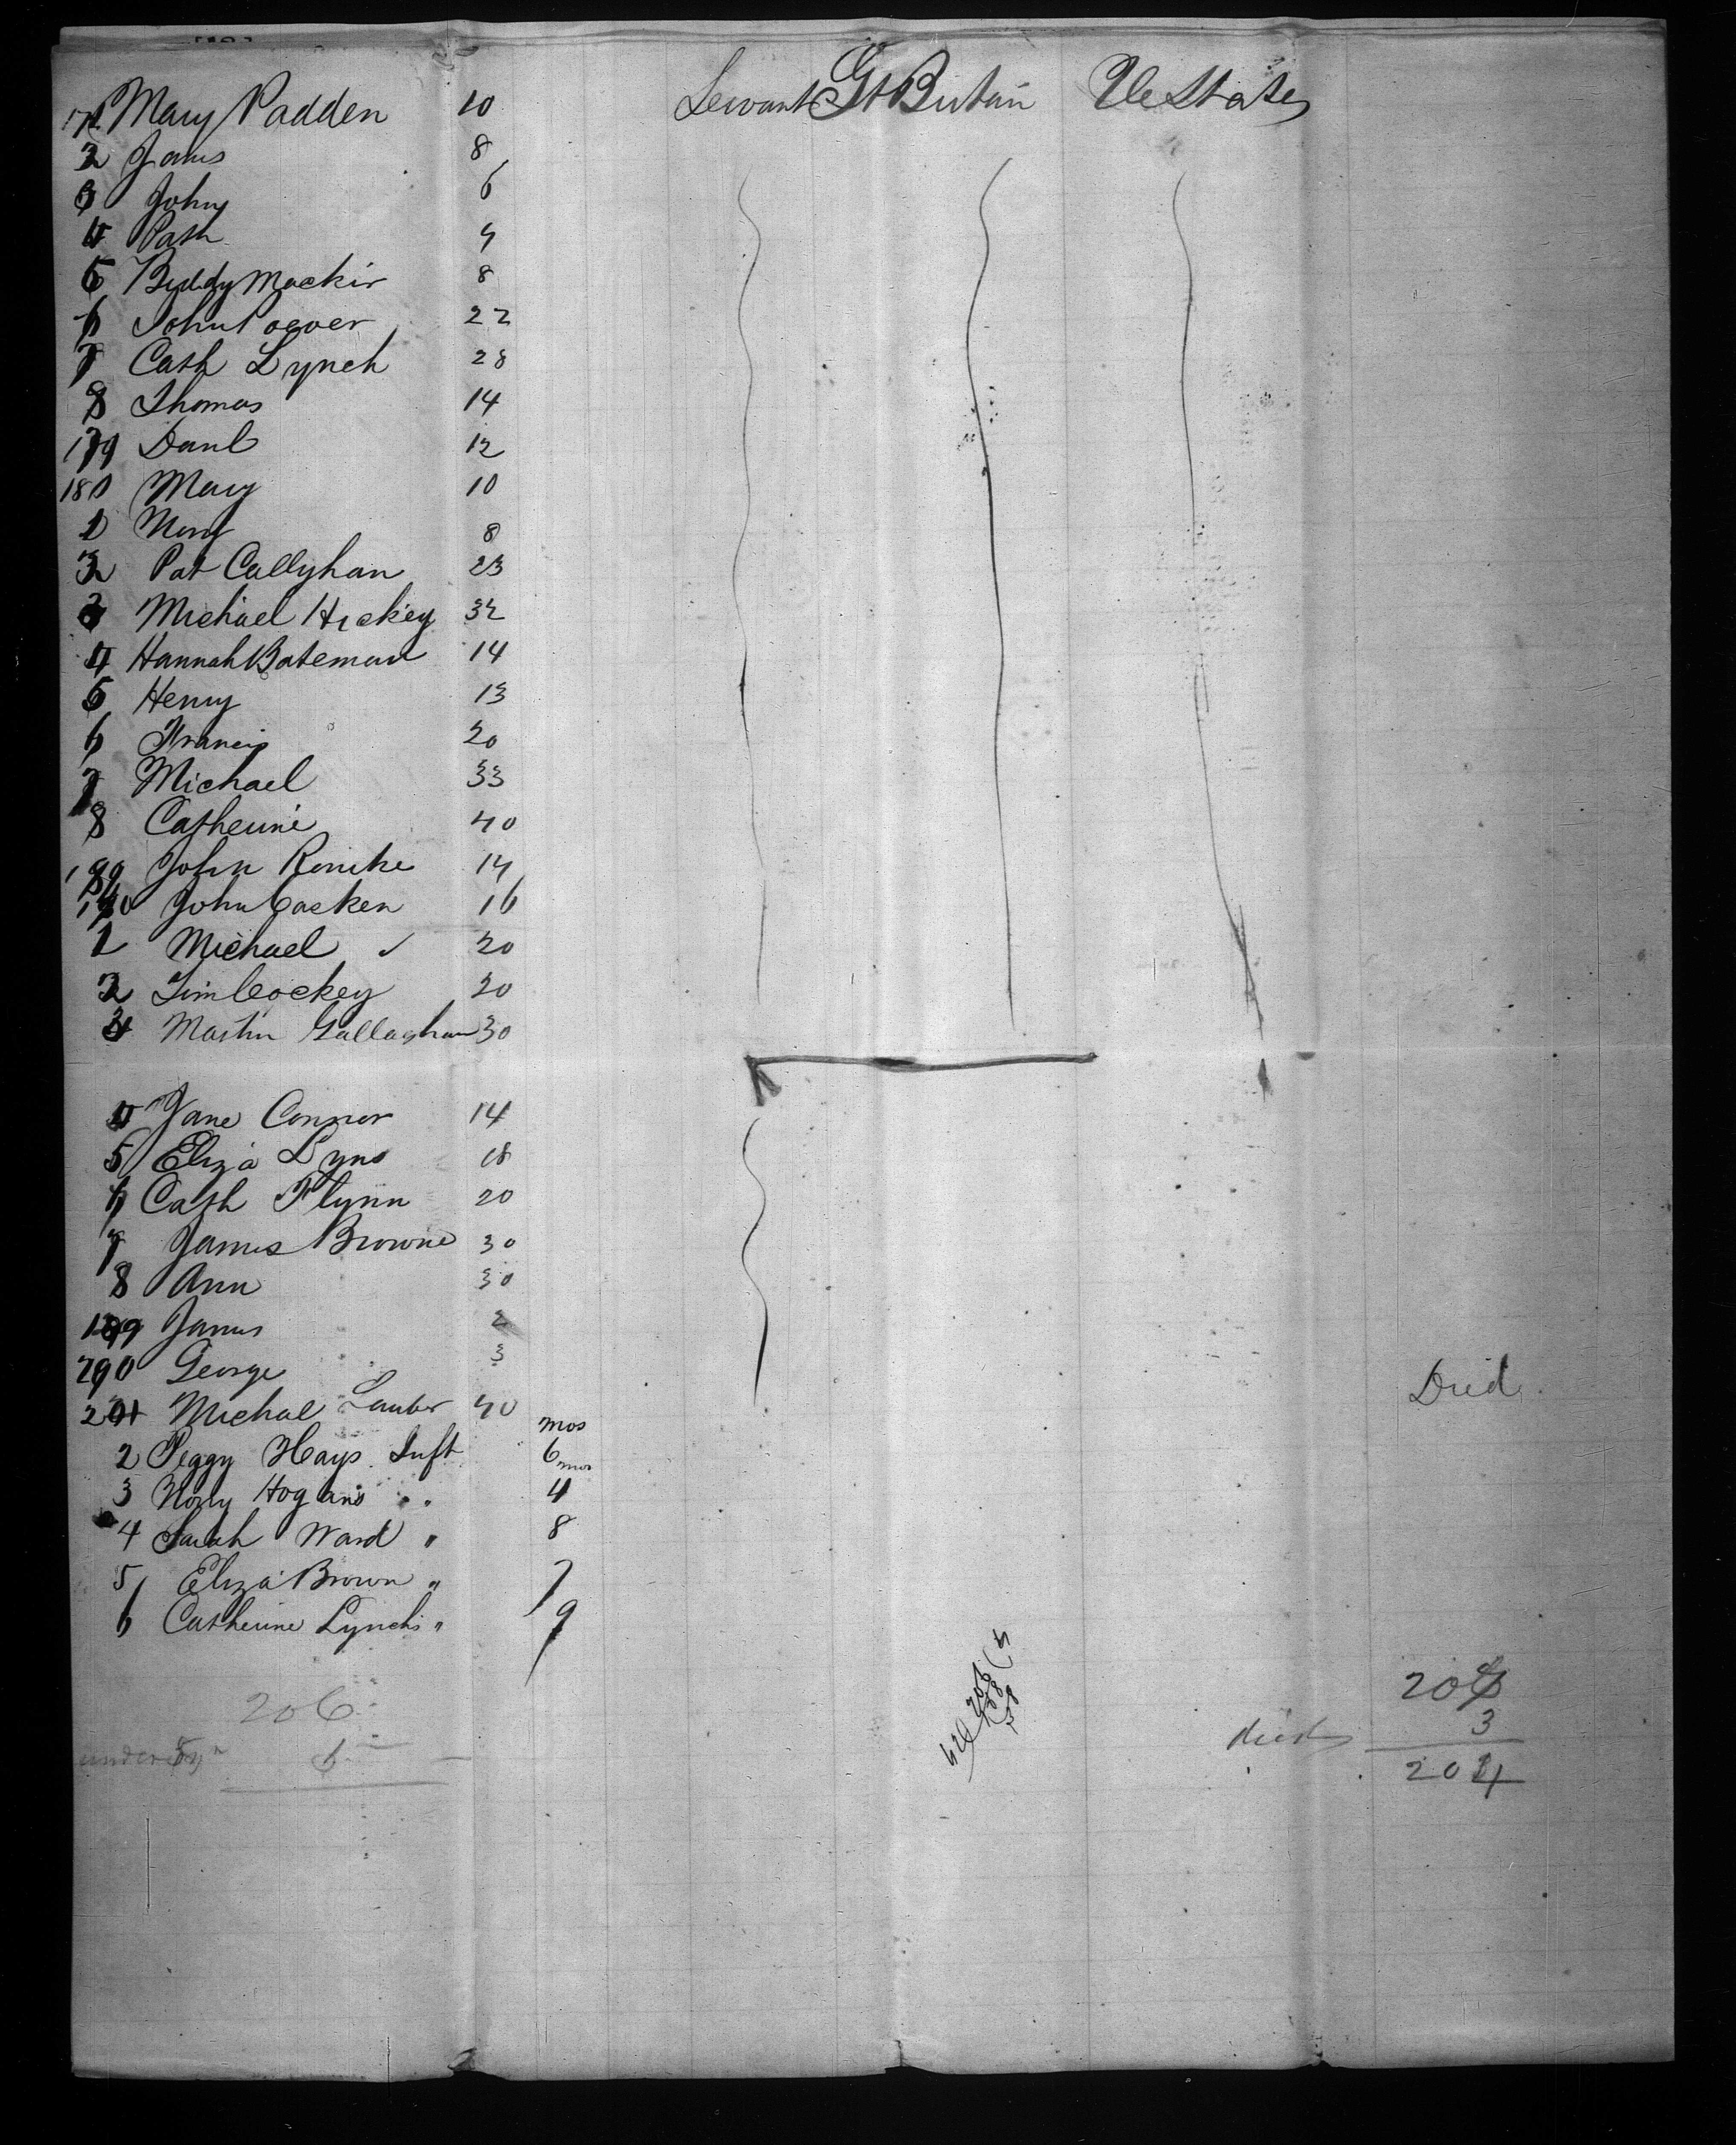 Mary Padden 10 Servants Gt Britain Ue States
2 Jams 8
3 John 6
4 Path 4
5 Biddy Mackir 8
6 John Power 22
7 Cath Lynch 28
8 Thomas 14
179 Danl 12
180 Mary 10
1 Nory 8
2 Pat Callyhan 23
3 Michael Hickey 32
4 Hannah Bateman 14
5 Henry 13
6 Francis 20
7 Michael 33
8 Catherine 40
189 John 14
190 John 16
1 Michael 20
2 Tim Cockey 20
3 Martin Gallaghan 30
4 Jane Connor 14
5 Eliza Lyns 18
6 Cath Flynn 20
7 James Browne 30
8 Ann 30
199 James 2
200 George 3
201 Michal 40 Died
mos
2 Peggy Hays Inft 6 mos
3 Nory Hogans " 4
4 Sarah Ward " 8
5 Eliza Brown " 7
6 Catherine Lynch " 9
206 206
died 3
under 5 yr 6 204